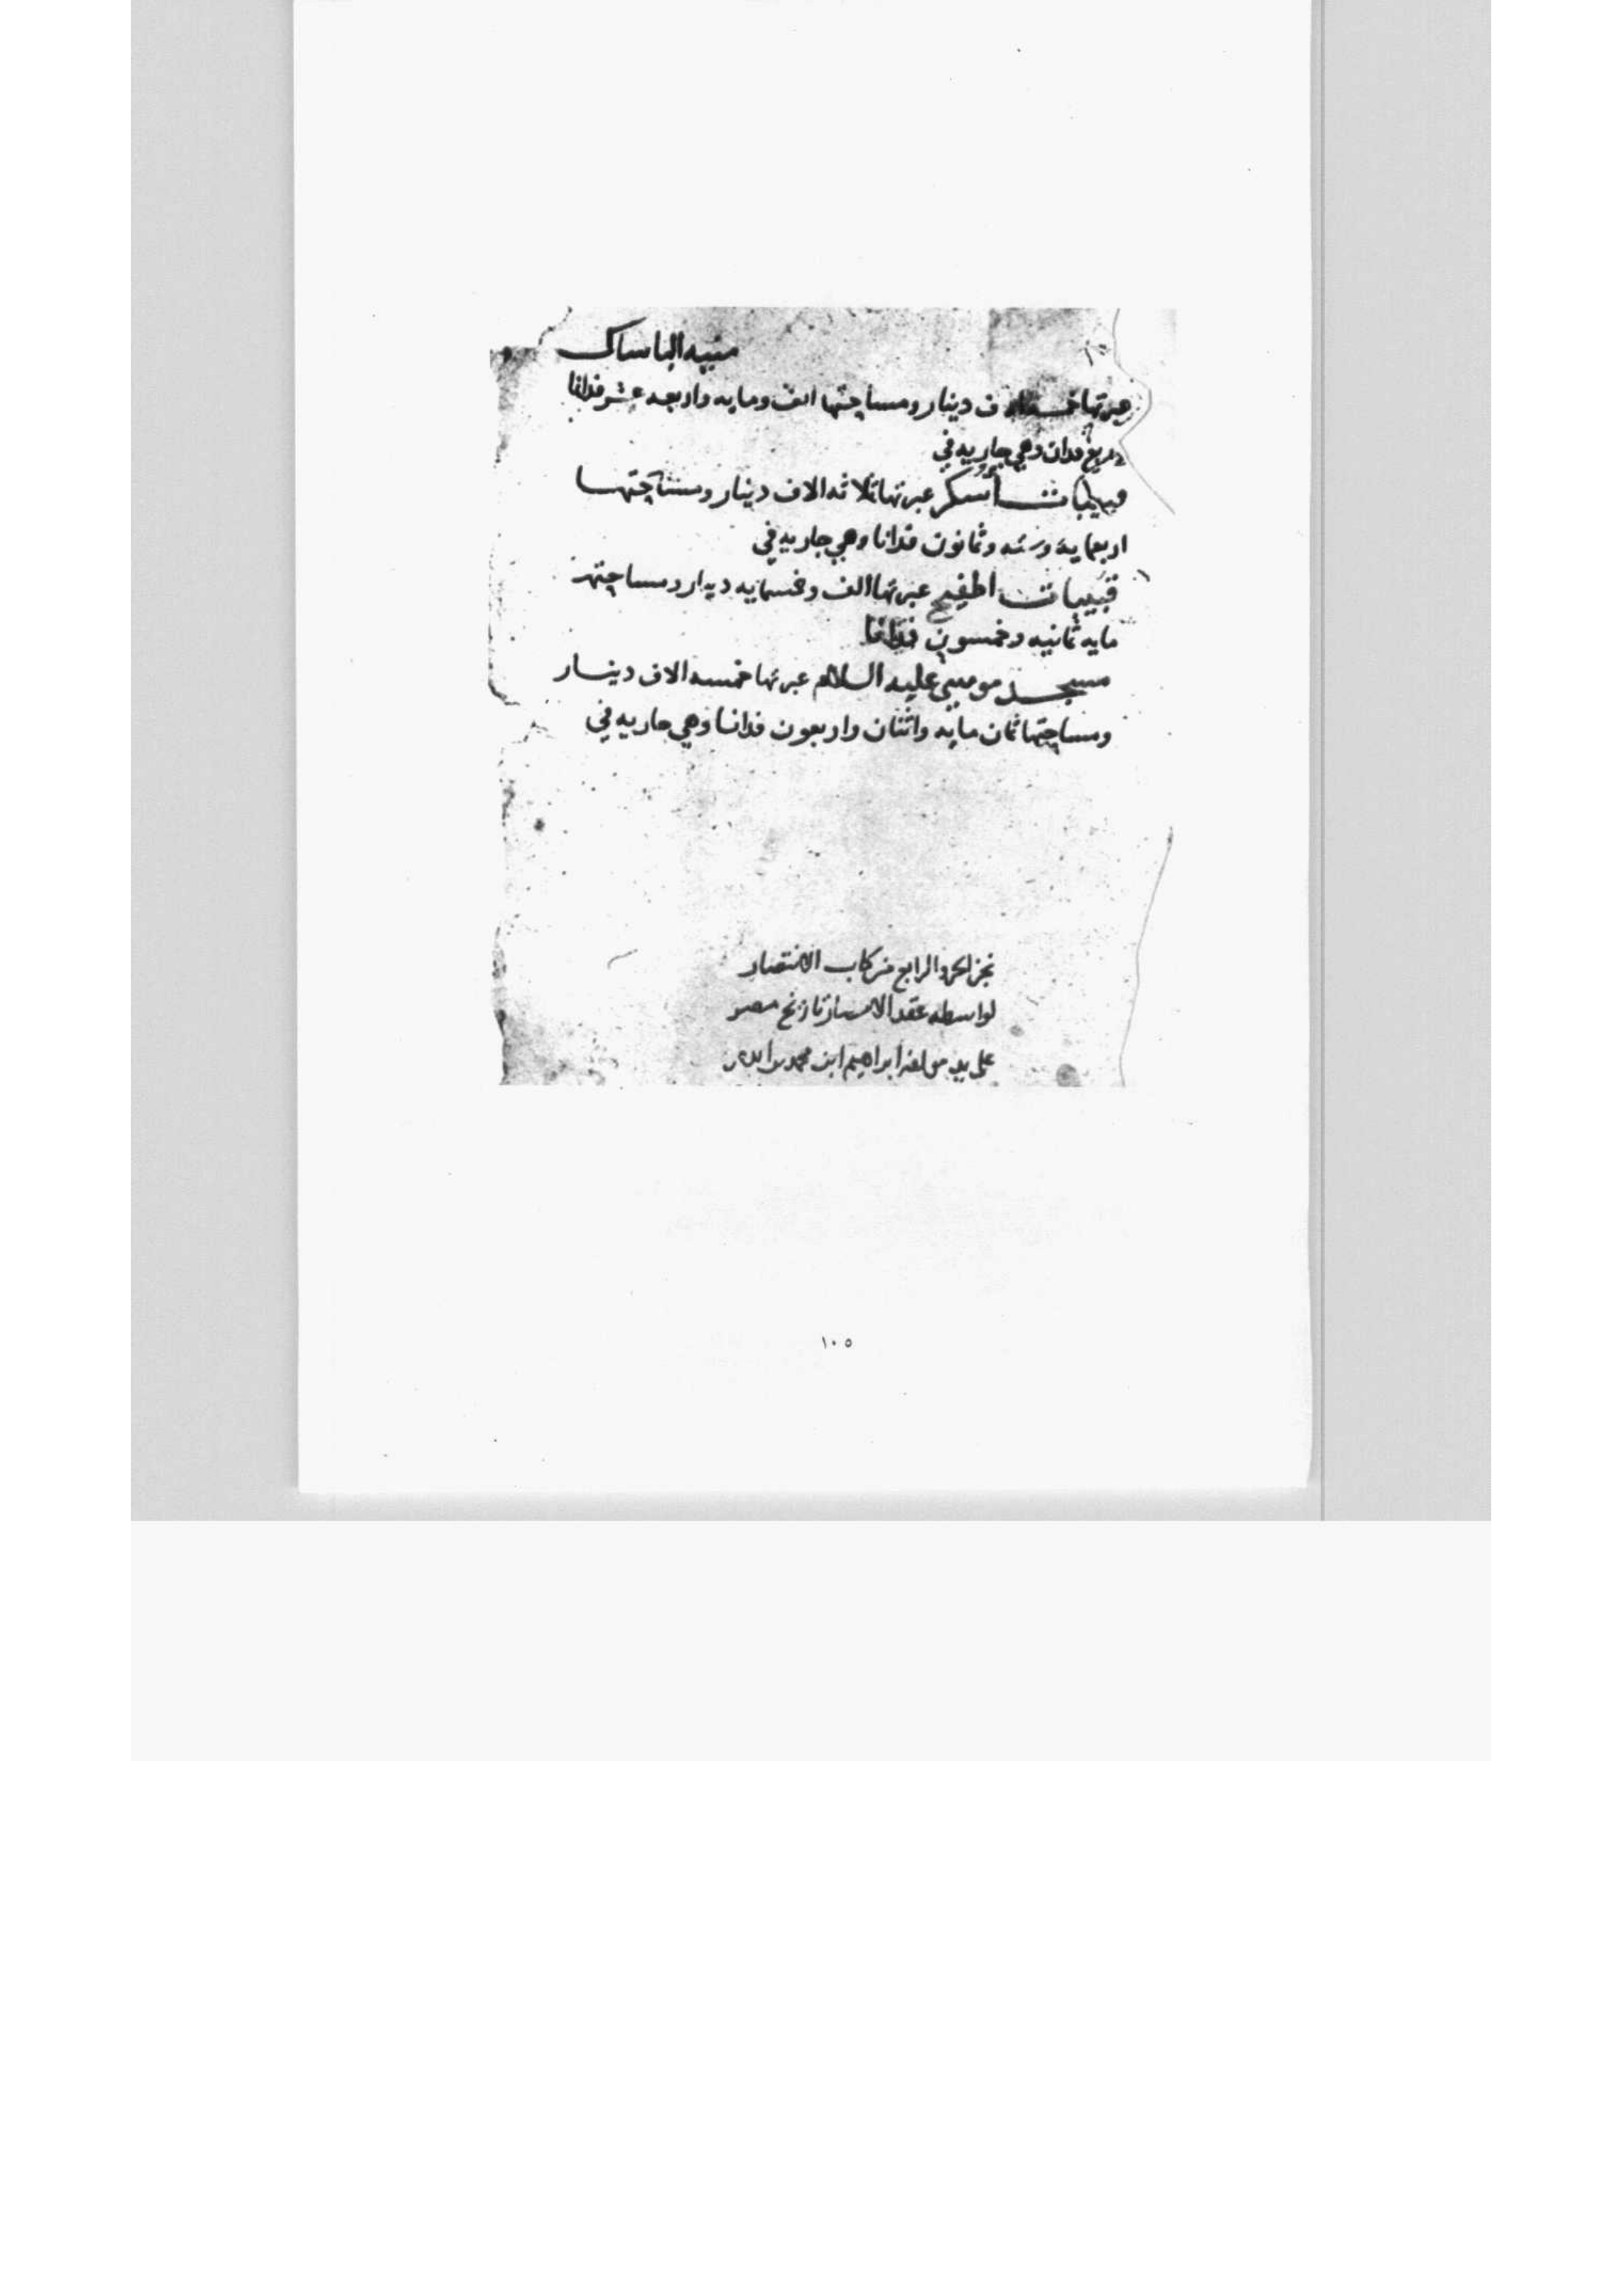 منيه الباساك
عبرتها خمسة الاف دينار ومساحتها الف ومايه واربعه عشر فدانا
وربع فدان وهي جاريه في
قبيبات أسكر عبرتها ثلاثه الاف دينار ومساحتها
اربعمايه وسته وثمانون فدانا وهي جاريه في
قبيبات اطفيح عبرتها الف وخمسمايه دينار ومساحتها
مايه ثمانيه وخمسون فدانا
مسجد موسي عليه السلام عبرتها خمسه الاف دينار
ومساحتها ثمان مايه واثنان واربعون فدانا وهي جاريه في
نجز الجزو الرابع من كتاب الانتصار
لواسطه عقد الامصار تاريخ مصر
علي يد مولفه ابراهيم ابن محمد بن
١٠٥